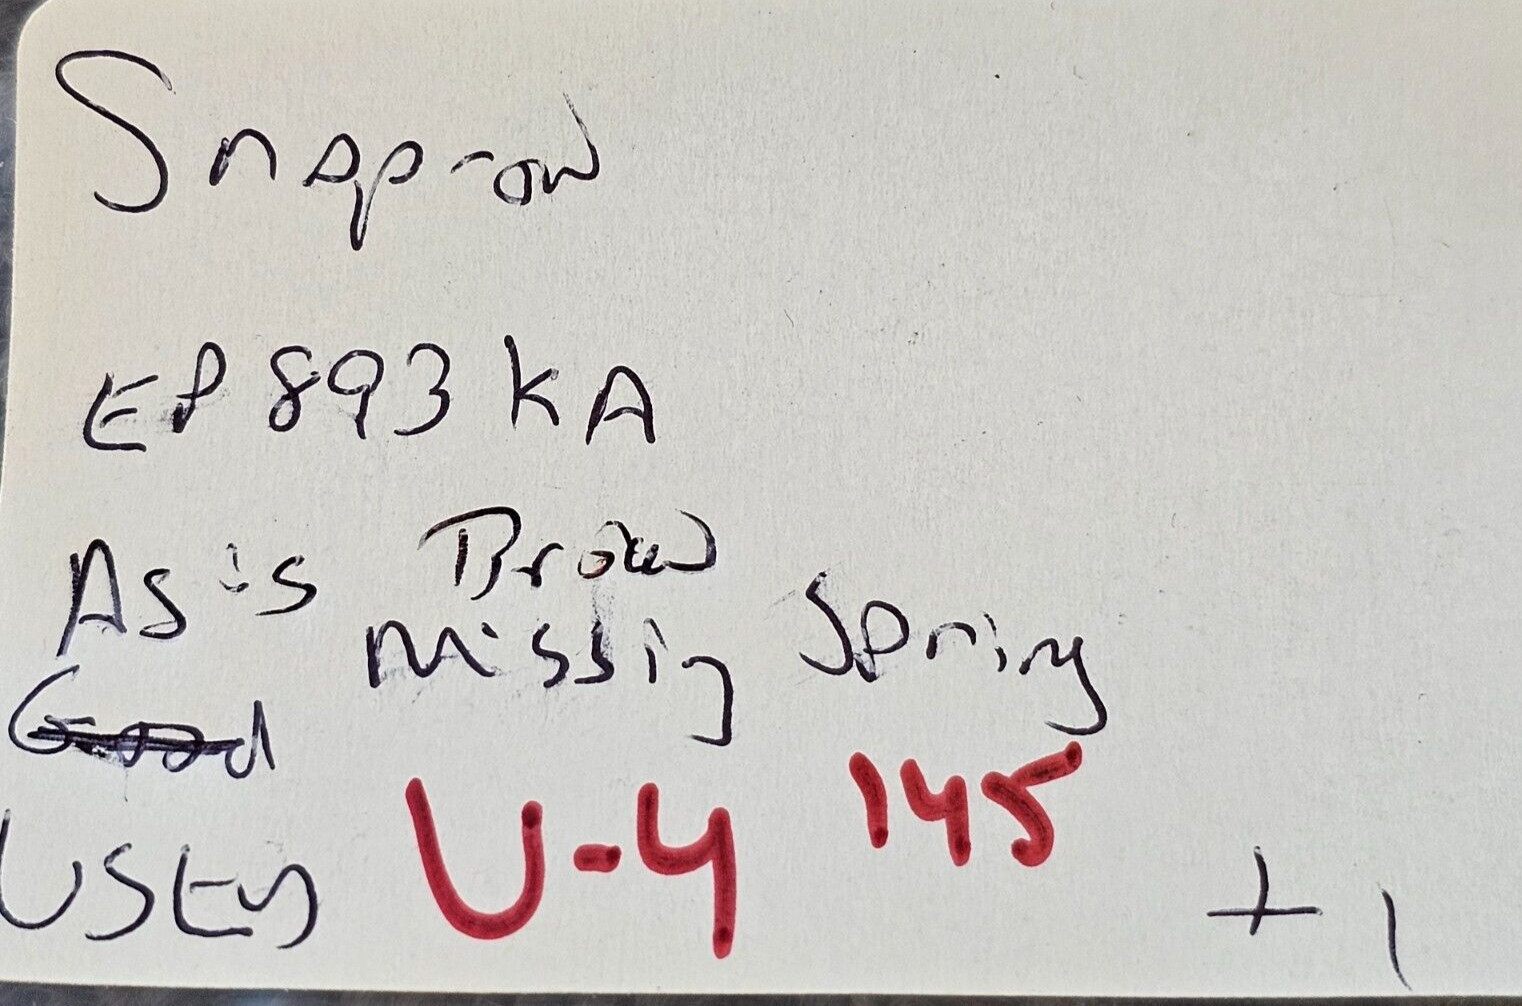 Snap-on
EP893KA
As is Brow
missig Spring
Good
USED U-4 145 +1